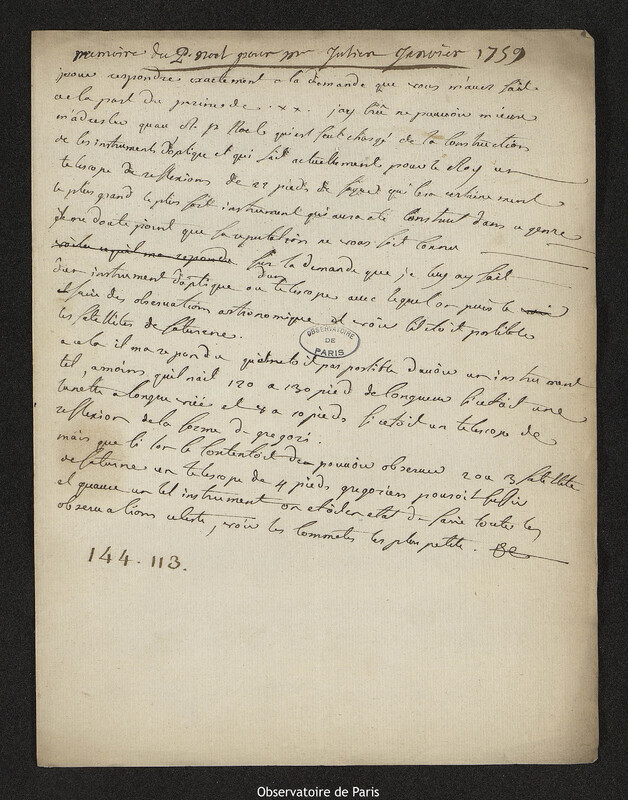 memoire du P. noel pour mr Julien Janvier 1759
pour respondre exactement a la demande que vous m'avez fait
de la part du prince de . x x . jay crû ne pouvoir mieux
m'adresser quau Rt pr Noel qui est seul chargé de la Construction
de les instruments d'optique et qui fait actuellement pour le Roy un
telescope de reflexions de 22 pieds de foyer qui sera certainement
le plus grand le plus fort instrument qui aura eté Construit dans ce genre
je ne doute point que sa reputation ne vous soit connue
voila ce qu'il ma repondu sur la demande que je luy ay fait
d'un instrument d'optique ou d'un telescope avec lequel on puis le
et faire des observations astronomique et voir sil etoit possible
les satellites de saturne.
OBSERVATOIRE DE PARIS
a cela il ma repondu quil netoit pas possible d'avoir un instrument
tel, a moins quil nait 120 a 130 pied de longueur si cetoit une
lunette a longue vüe et 8 a 10 pieds si cetoit un telescope de
reflexion de la forme de gregori.
mais que si lon se Contentoit de pouvoir observer 2 ou 3 satellite
de saturne un telescope de 4 pieds gregorien pouroit suffir
et quavec un tel instrument on etoit en etat de faire toutes les
observations celeste, voir les Commetes les plus petite. &c
144. 113.
Observatoire de Paris